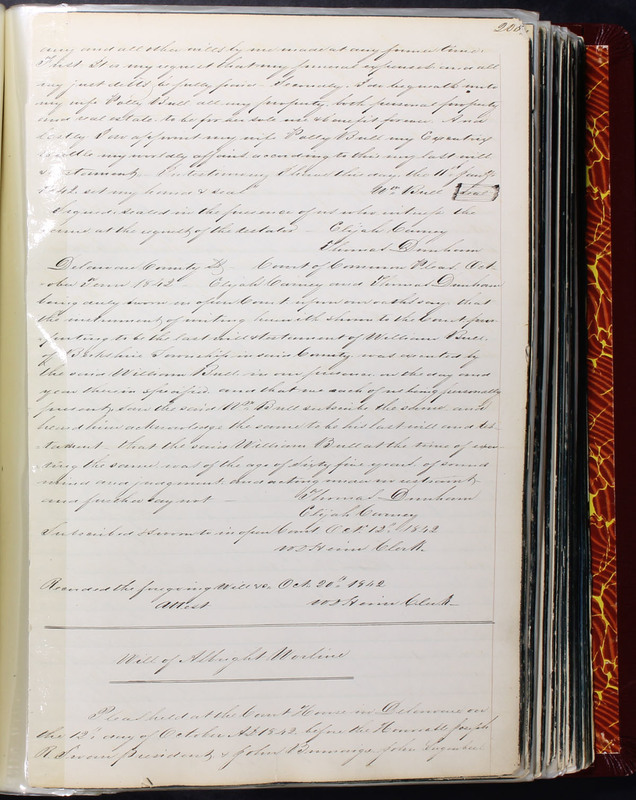 205
any and all other wills by me made at any former time.
First. It is my request that my funeral expenses and all
my just debts be fully paid. Secondly. I do bequeath unto
my wife Polly Bull all my property both personal property
and real estate to be for her sole use & benefit forever. And
lastly I do appoint my wife Polly Bull my Executrix
to settle my worldly affairs according to this my last will
& testament. In testimony I have this day the 11th
1842 set my hand & seal Wm Bull Seal
Signed sealed in the presence of us who witness the
same at the request of the testator Elijah Carney
Thomas Dunham
Delaware County Ss Court of Common Pleas Oct-
ober Term 1842 Elijah Carney and Thomas Dunham
being duly sworn in open Court upon our oaths say that
the instrument of writing herewith shown to the Court pur-
porting to be the last will & testament of William Bull
of Berkshire Township in said County was executed by
the said William Bull in our presence on the day and
year therein specified and that we each of us being personally
present saw the said Wm Bull subscribe the same and
heard him acknowledge the same to be his last will and tes-
tament that the said William Bull at the time of execu-
ting the same was of the age of sixty five years of sound
mind and judgement and acting under no restraint
and further say not Thomas Dunham
Elijah Carney
Subscribed & sworn to in open Court Oct. 12th 1842
Clerk.
Recorded the foregoing Will &c. Oct. 20th 1842
Attest Clerk
Will of Albright Worline
Pleas held at the Court House in Delaware on
the 12th day of October AD 1842 before the Honorable Joseph
R Swan president & John